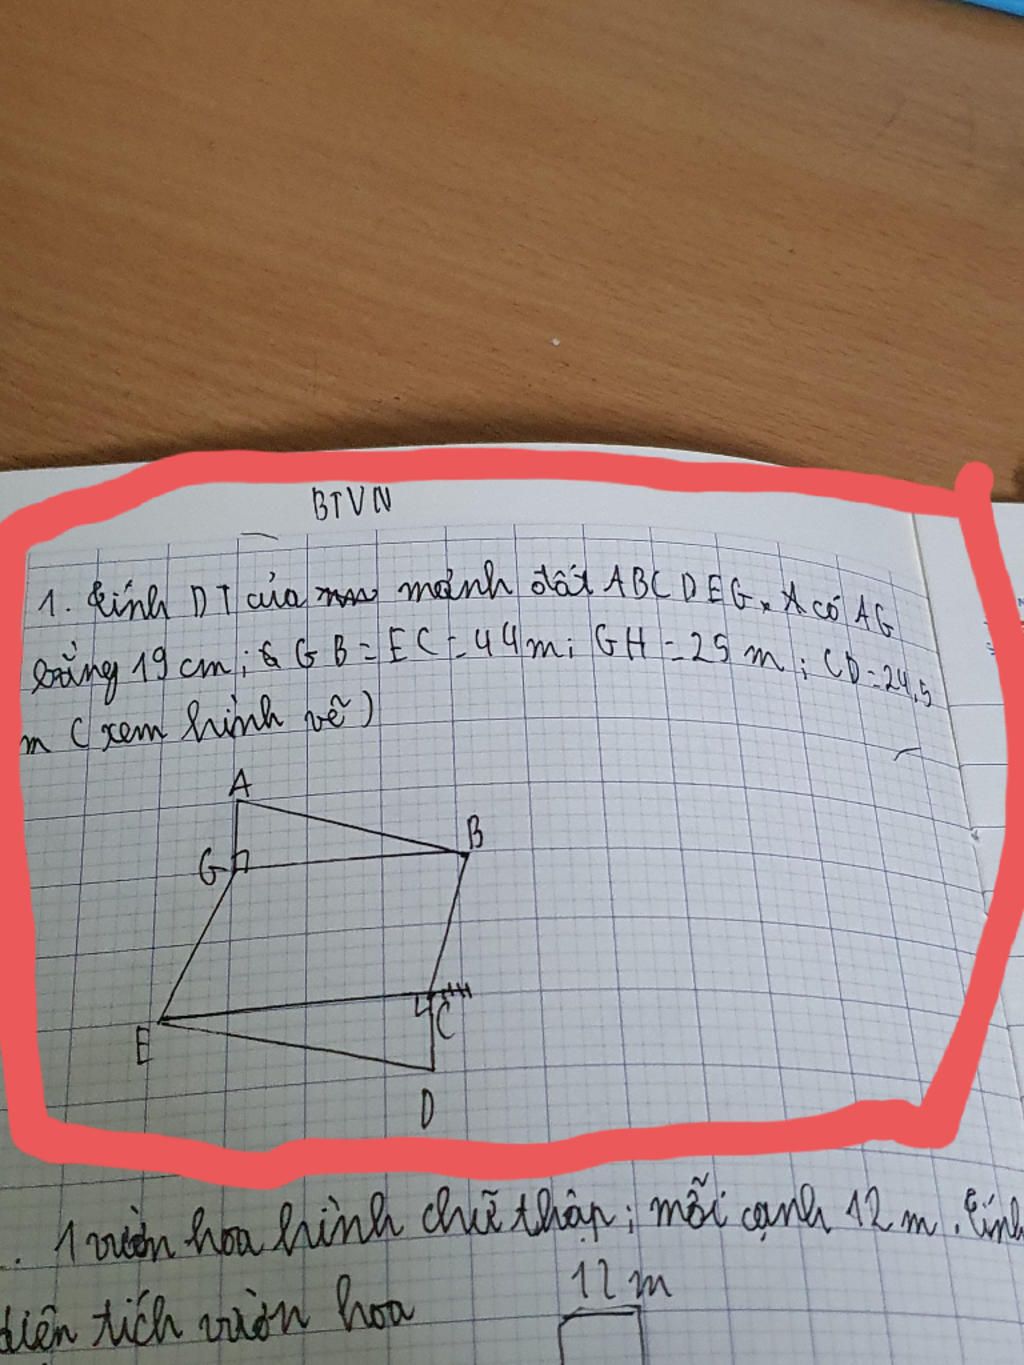 BTVN
1. tính DT của mảnh đất ABCDEG. có AG
bằng 19 cm; GB = EC = 44m; GH = 25 m; CD = 24,5
m (xem hình vẽ)
A
B
G
C
E
D
.. 1 vườn hoa hình chữ thập; mỗi cạnh 12 m. tính
diện tích vườn hoa
12 m